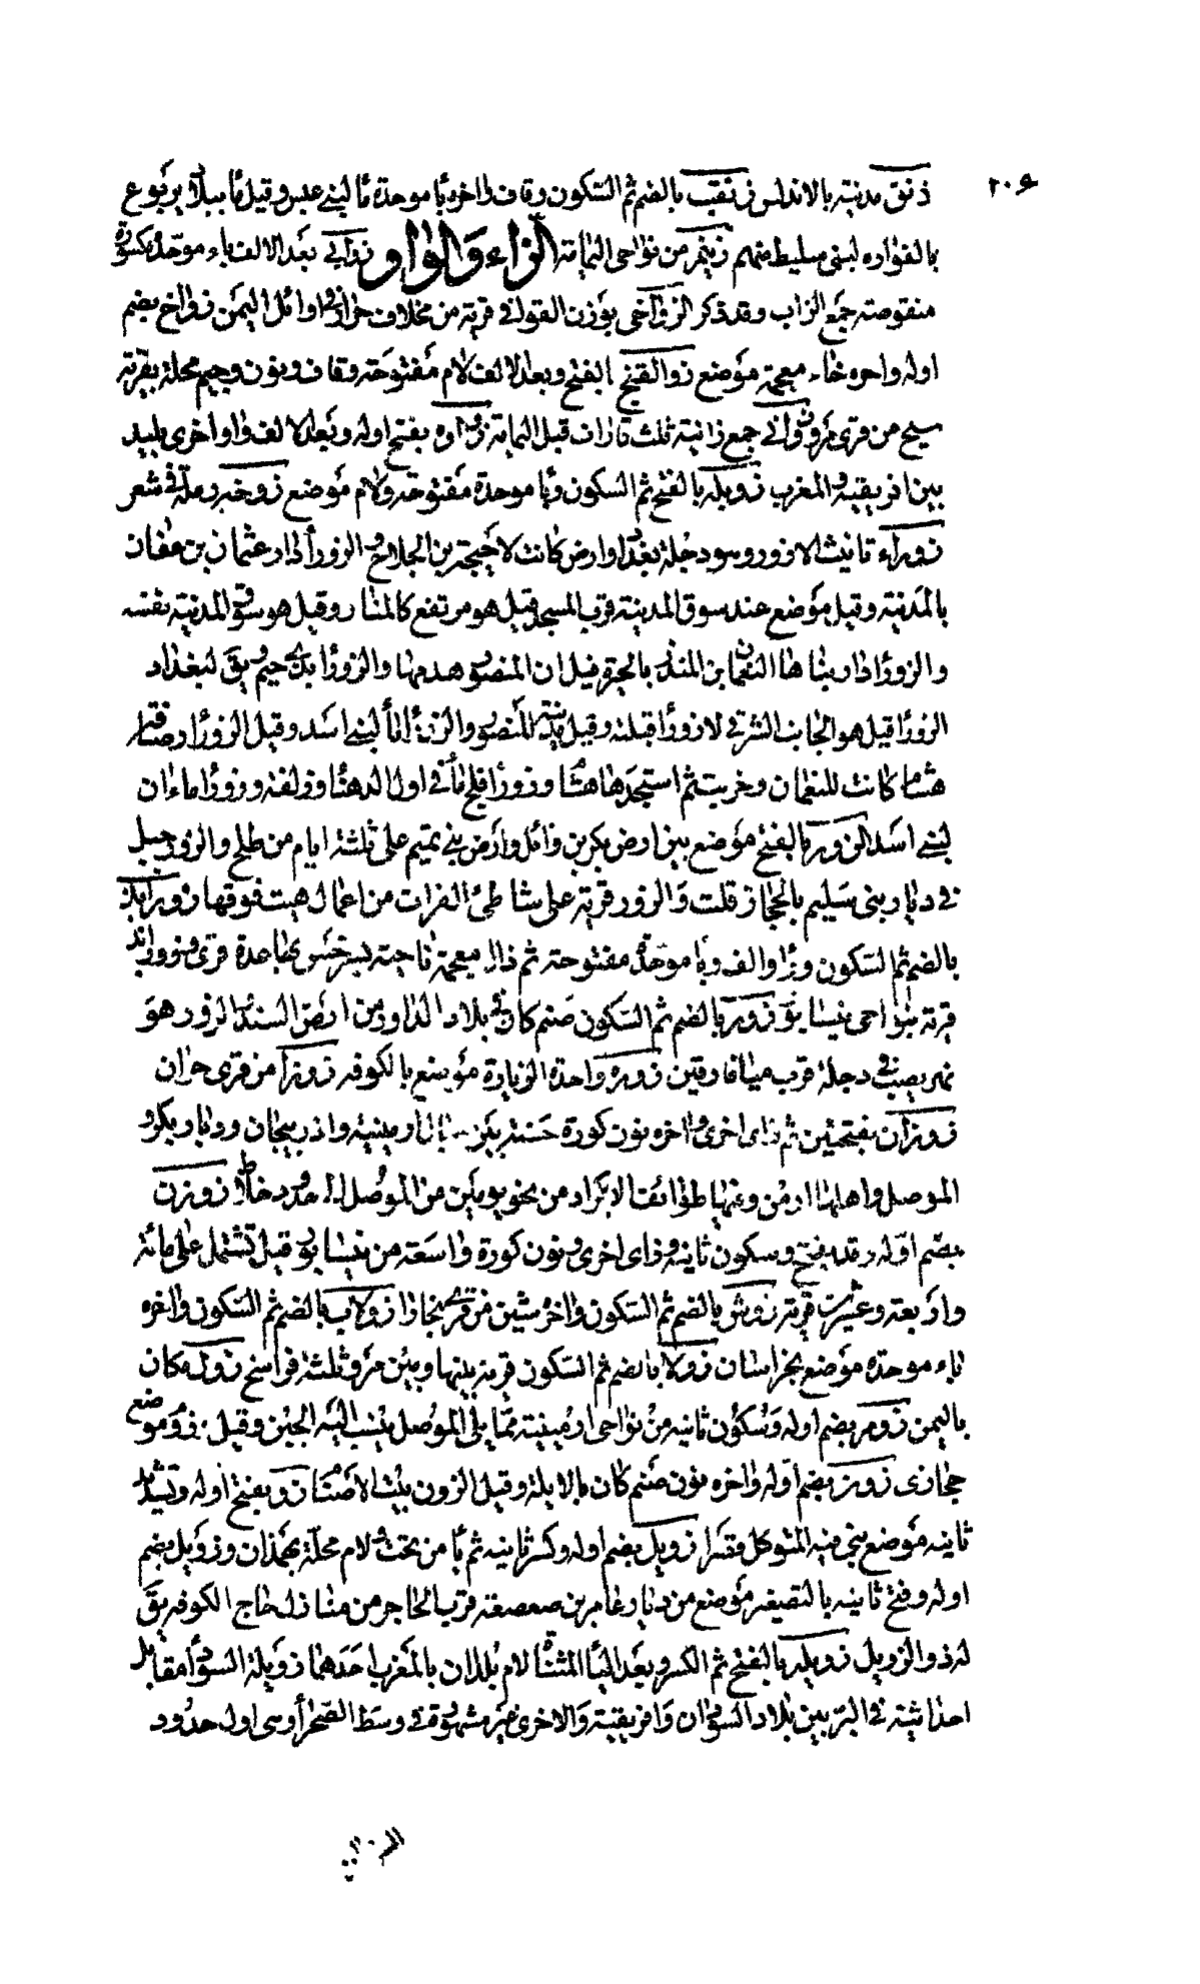 ٢٠٤
ذنق مدينة بالاندلس زنقب بالضم ثم السكون وقاف واخره با موحدة ما لبنى عبس وقيل ما ببلاد يربوع
بالقواره لبنى سليط منهم زنيم من نواحى اليمامة الزاء والواو زوابى بعد الالف باء موحدة مكسورة
منقوصة جمع الزاب وقد ذكر الزواخى بوزن القوافى قرية من مخلاف حراز فى اوائل اليمن زواخ بضم
اوله واخره خاء معجمة موضع زوالقنج بالفتح وبعد الالف لام مفتوحة وقاف ونون وجيم محلة بقرية
سنج من قرى مرو زوانى جمع زانية ثلث قارات قبل اليمامة زواوه بفتح اوله وبعد الالف واو اخرى بليد
بين افريقية والمغرب زوبله بالفتح ثم السكون وبا موحدة مفتوحة ولام موضع زوخه رملة فى شعر
زوراء تانيث الازور وهو دجلة بغداد وارض كانت لاحيحة بن الجلاح والزورا دار عثمان بن عفان
بالمدينة وقيل موضع عند سوق المدينة قرب المسجد قيل هو مرتفع كالمنار وقيل هو سوق المدينة نفسه
والزورا دار بناها النعمان بن المنذر بالحيرة قيل ان المنصور هدمها والزورا
الزورا قيل هو الجانب الشرقى لازورار قبلته وقيل مدينة للمنصور والزورا ما لبنى اسد وقيل الزورا رصافة
هشام كانت للنعمان وخربت ثم استجدها هشام وزورا فلج ما فى اول الدهنا وزلفة وزورا ماءان
لبنى اسد الزور بالفتح موضع بين ارض بكر بن وائل وارض بنى تميم على ثلثة ايام من طلح والزور جبل
فى ديار بنى سليم بالحجاز قلت والزور قرية على شاطئ الفرات من اعمال هيت فوقها زورابذ
بالضم ثم السكون ورا والف وبا موحدة مفتوحة ثم ذال معجمة ناحية بسرخس بها عدة قرى وزورابذ
قرية بنواحى نيسابور زور بالضم ثم السكون صنم كان فى بلاد الداور من ارض السند الزور هو
نهر يصب فى دجلة قرب ميافارقين زوره واحدة الزيارة موضع بالكوفه زوزا من قرى حران
زوزان بفتحتين ثم زاى اخرى واخره نون كورة حسنة بين ارمينية واذربيجان وديار بكر و
الموصل واهلها ارمن وفيها طوائف الاكراد من نحو يومين من الموصل الى حدود خلاط زوزن
بضم اوله وقد يفتح وسكون ثانيه وزاى اخرى ونون كورة واسعة من نيسابور قيل تشتمل على مائة
واربعة وعشرين قرية زوش بالضم ثم السكون واخره شين من قرى بخارا زولاب بالضم ثم السكون واخره
باء موحدة موضع بخراسان زولاه بالضم ثم السكون قرية بينها وبين مرو ثلثة فراسخ زوله مكان
باليمن زوم بضم اوله وسكون ثانيه من نواحى ارمينية مما يلى الموصل ينسب اليه الجبن وقيل زوم موضع
حجازى زون بضم اوله واخره نون صنم كان بالابلة وقيل الزون بيت الاصنام زو بفتح اوله وتشديد
ثانيه موضع بنى فيه المتوكل قصرا زويل بضم اوله وكسر ثانيه ثم يا من تحت ولام محلة بهمذان وزويل بضم
اوله وفتح ثانيه بالتصغير موضع من ديار عامر بن صعصعة قرب الحاجر من منازل حاج الكوفه يق
له ذو الزويل زويله بالفتح ثم الكسر وبعد اليا المثناة لام بلدان بالمغرب احدهما زويلة السودان مقابل
اجدابية فى البر بين بلاد السودان وافريقية والاخرى غير مشهورة فى وسط الصحرا وهى اول حدود